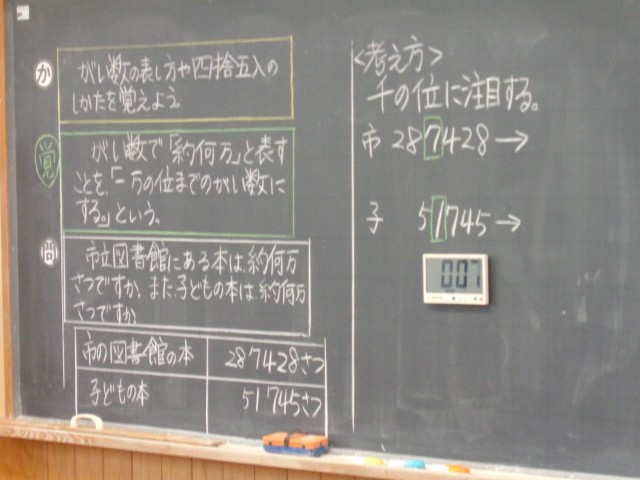 か
がい数の表し方や四捨五入の
しかたを覚えよう。
覚
がい数で「約何万」と表す
ことを、「一万の位までのがい数に
する。」という。
問
市立図書館にある本は、約何万
さつですか。また、子どもの本は約何万
さつですか。
市の図書館の本 287428さつ
子どもの本 51745さつ
<考え方>
千の位に注目する。
市 287428→
子 51745→
007